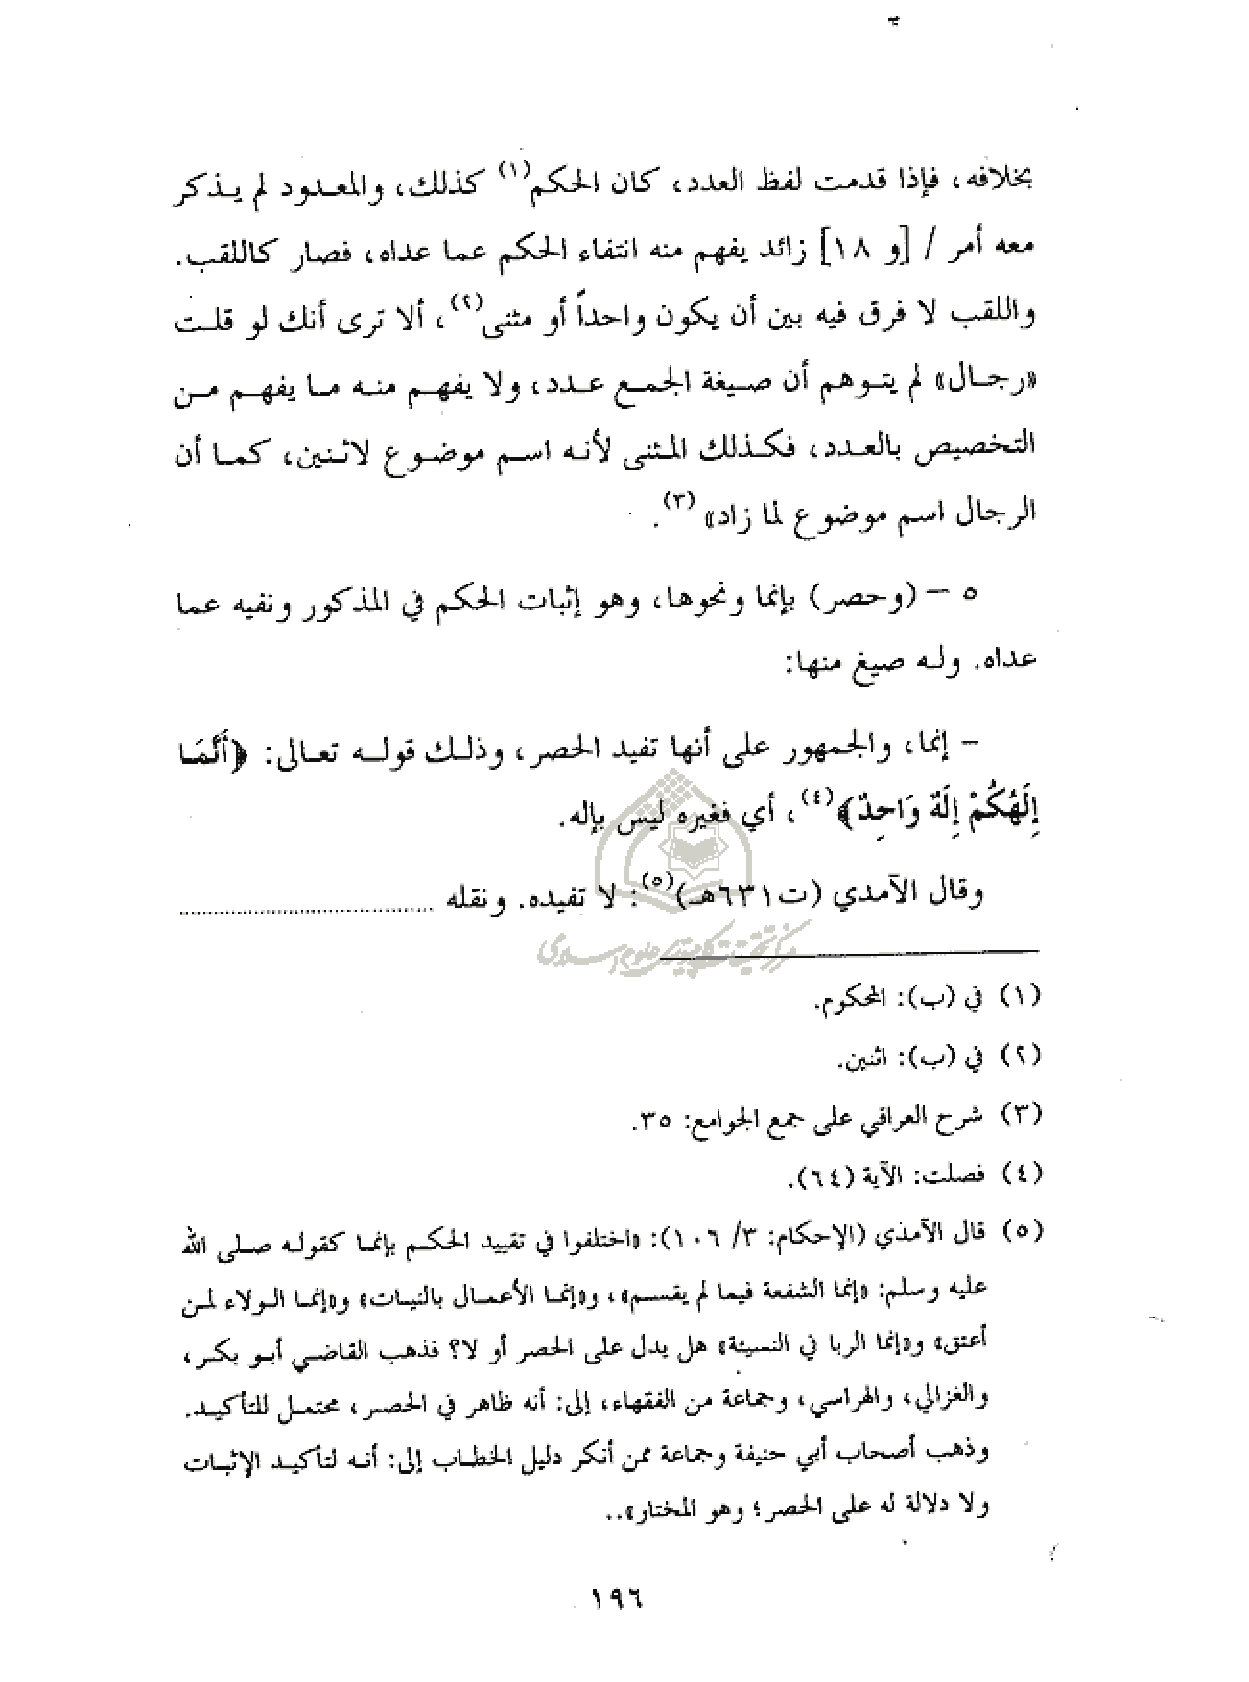 بخلافه، فإذا قدمت لفظ العدد، كان الحكم(١) كذلك، والمعدود لم يذكر
معه أمر / [و ١٨] زائد يفهم منه انتفاء الحكم عما عداه، فصار كاللقب.
واللقب لا فرق فيه بين أن يكون واحداً أو مثنى(٢)، ألا ترى أنك لو قلت
«رجال» لم يتوهم أن صيغة الجمع عدد، ولا يفهم منه ما يفهم من
التخصيص بالعدد، فكذلك المثنى لأنه اسم موضوع لاثنين، كما أن
الرجال اسم موضوع لما زاد»(٣).
٥ – (وحصر) بإنما ونحوها، وهو إثبات الحكم في المذكور ونفيه عما
عداه. وله صيغ منها:
– إنما، والجمهور على أنها تفيد الحصر، وذلك قوله تعالى: ﴿أَنَّمَا
إِلَهُكُمْ إِلَهٌ وَاحِدٌ﴾(٤)، أي فغيره ليس بإله.
وقال الآمدي (ت٦٣١هـ)(٥): لا تفيده. ونقله ........................................
مركز تحقيقات كامپيوتري علوم اسلامي
(١) في (ب): المحكوم.
(٢) في (ب): اثنين.
(٣) شرح العراقي على جمع الجوامع: ٣٥.
(٤) فصلت: الآية (٦٤).
(٥) قال الآمدي (الإحكام: ٣/ ١٠٦): «اختلفوا في تقييد الحكم بإنما كقوله صلى الله
عليه وسلم: «إنما الشفعة فيما لم يقسم»، و«إنما الأعمال بالنيات» و«إنما الولاء لمن
أعتق» و«إنما الربا في النسيئة» هل يدل على الحصر أو لا؟ فذهب القاضي أبو بكر،
والغزالي، والهراسي، وجماعة من الفقهاء، إلى: أنه ظاهر في الحصر، محتمل للتأكيد.
وذهب أصحاب أبي حنيفة وجماعة ممن أنكر دليل الخطاب إلى: أنه لتأكيد الإثبات
ولا دلالة له على الحصر؛ وهو المختار»..
١٩٦